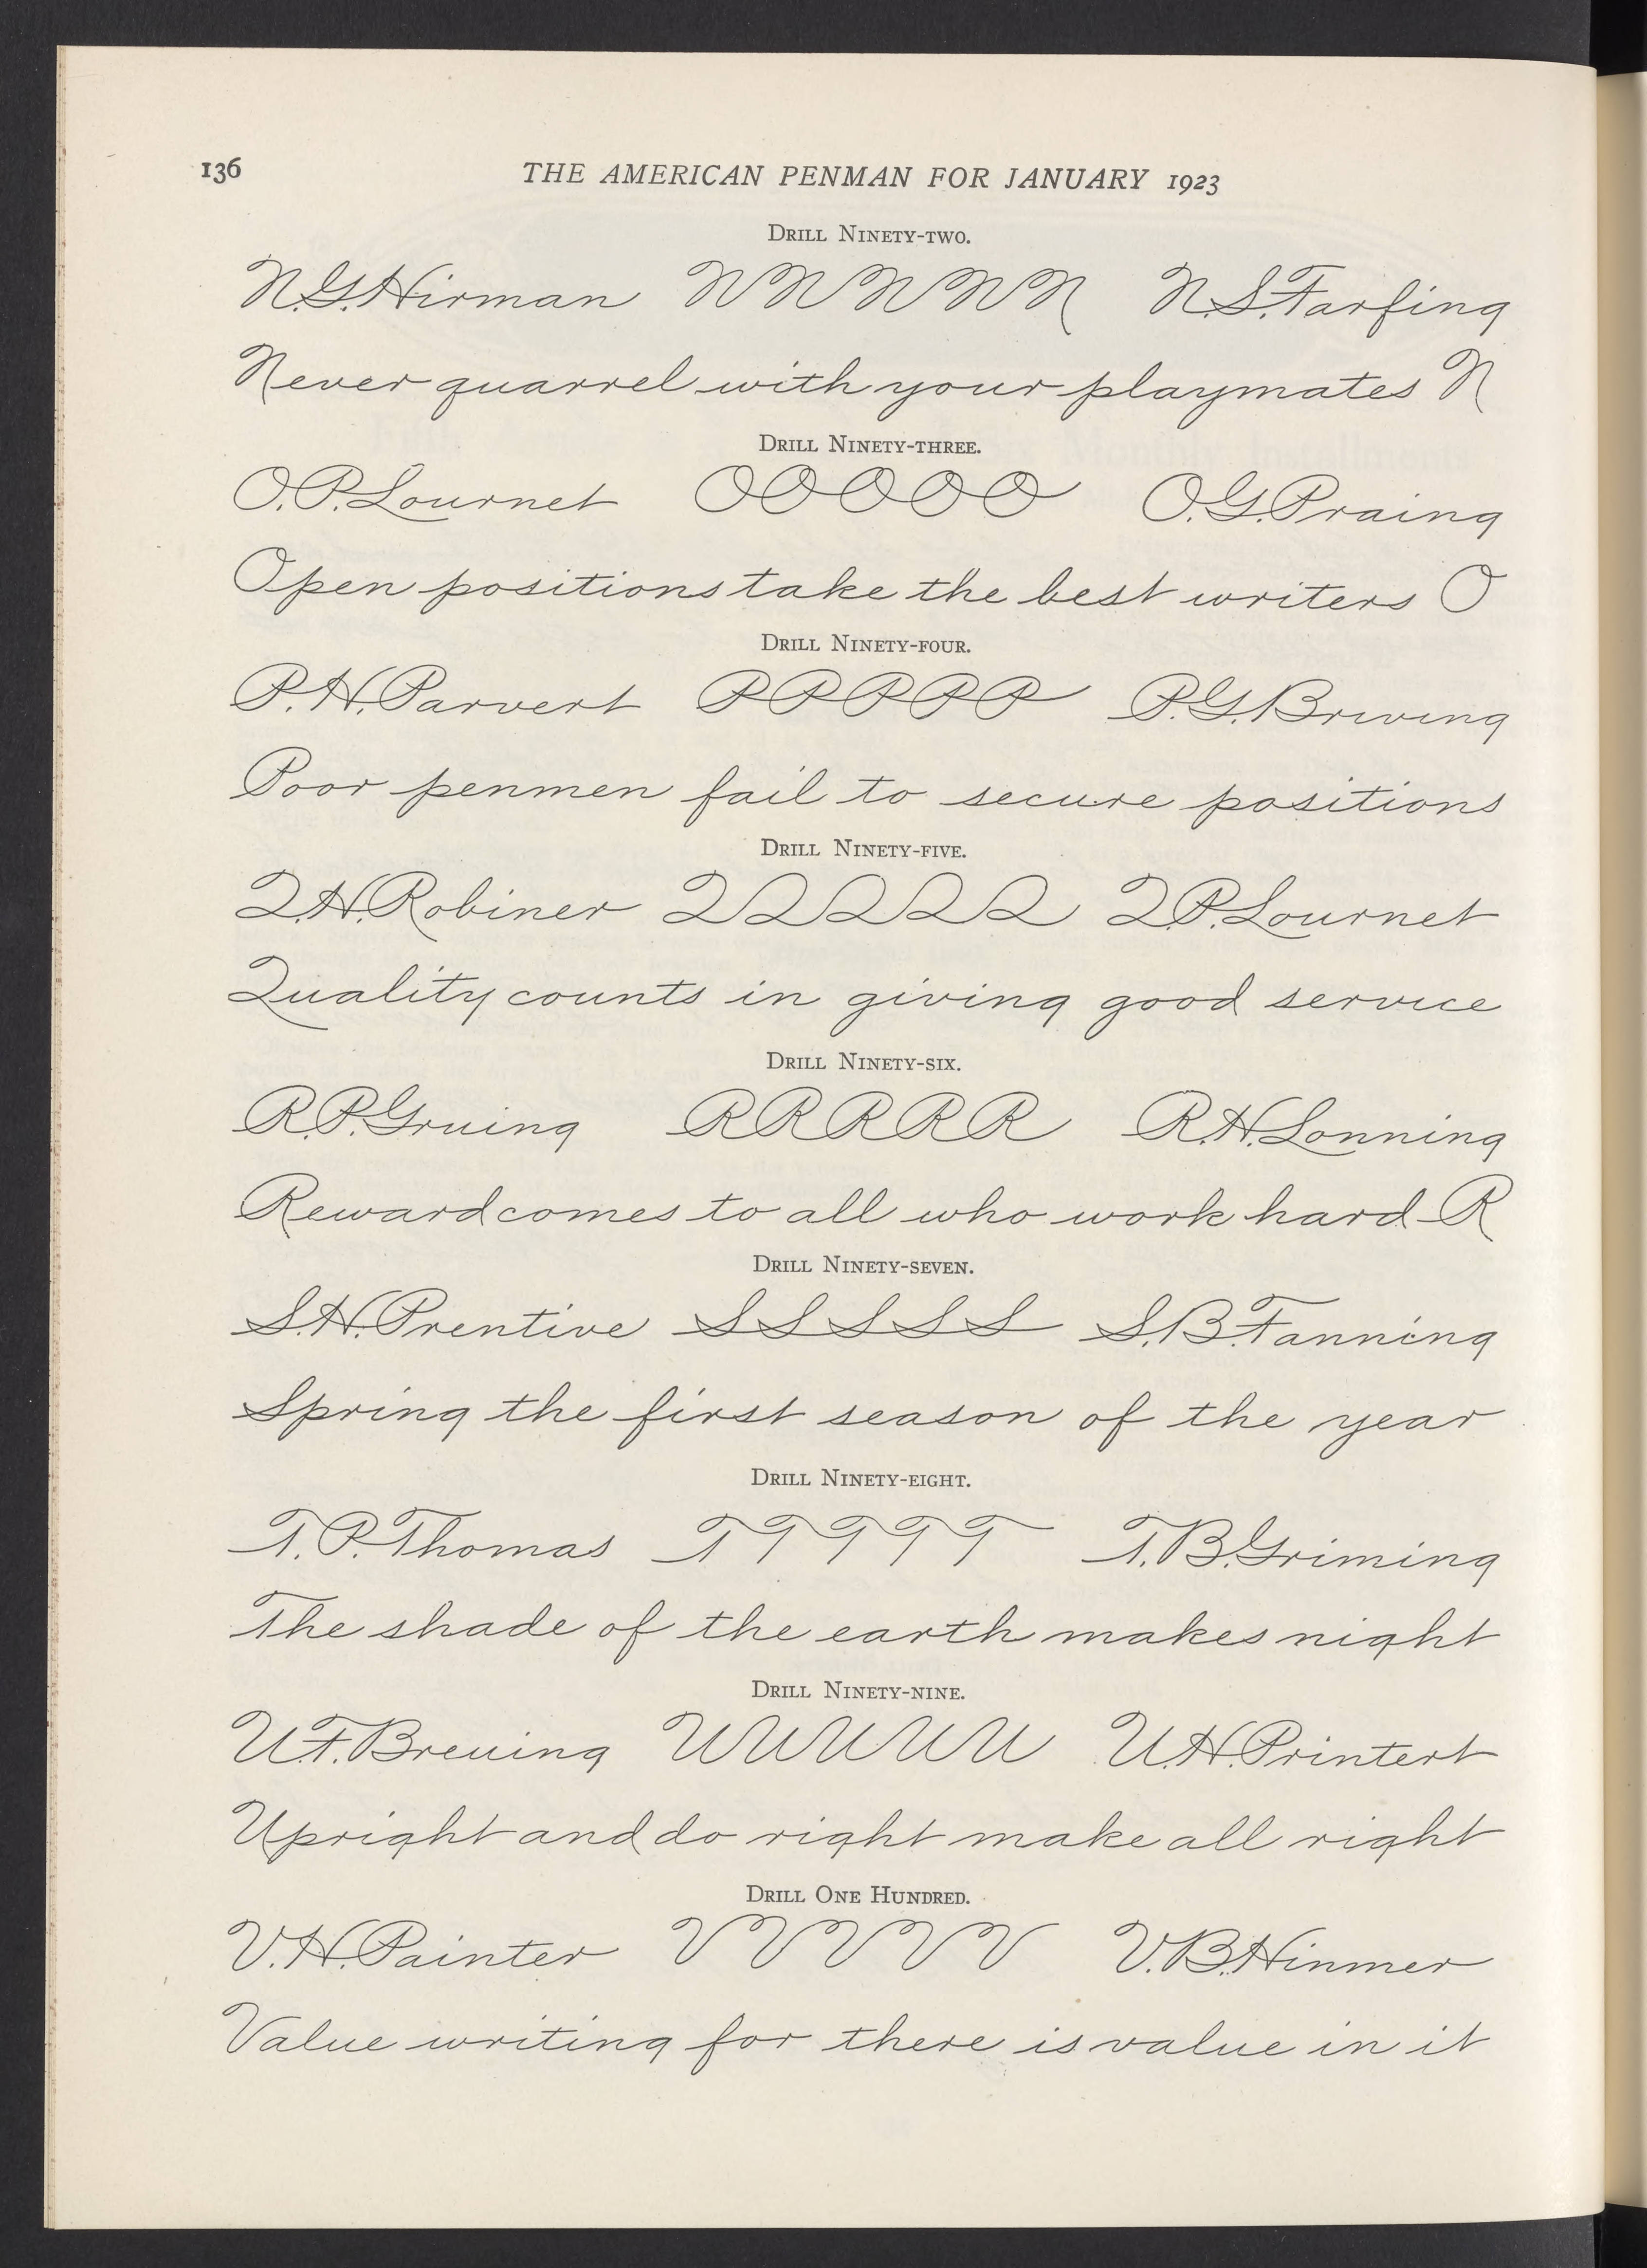 136 THE AMERICAN PENMAN FOR JANUARY 1923
DRILL NINETY-TWO.
N.G. Hirman N N N N N N.S. Farfing
Never quarrel with your playmates N
DRILL NINETY-THREE.
O.P. Lournet O O O O O O.G. Praing
Open positions take the best writers O
DRILL NINETY-FOUR.
P.H. Parvert P P P P P P.G. Briving
Poor penmen fail to secure positions
DRILL NINETY-FIVE.
Q.H. Robiner Q Q Q Q Q Q.P. Lournet
Quality counts in giving good service
DRILL NINETY-SIX.
R.P. Gruing R R R R R R.H. Lonning
Reward comes to all who work hard R
DRILL NINETY-SEVEN.
S.H. Prentive S S S S S S.B. Fanning
Spring the first season of the year
DRILL NINETY-EIGHT.
T.P. Thomas T T T T T T.B. Griming
The shade of the earth makes night
DRILL NINETY-NINE.
U.F. Breuing U U U U U U.H. Printert
Upright and do right make all right
DRILL ONE HUNDRED.
V.H. Painter V V V V V V.B. Hinmer
Value writing for there is value in it